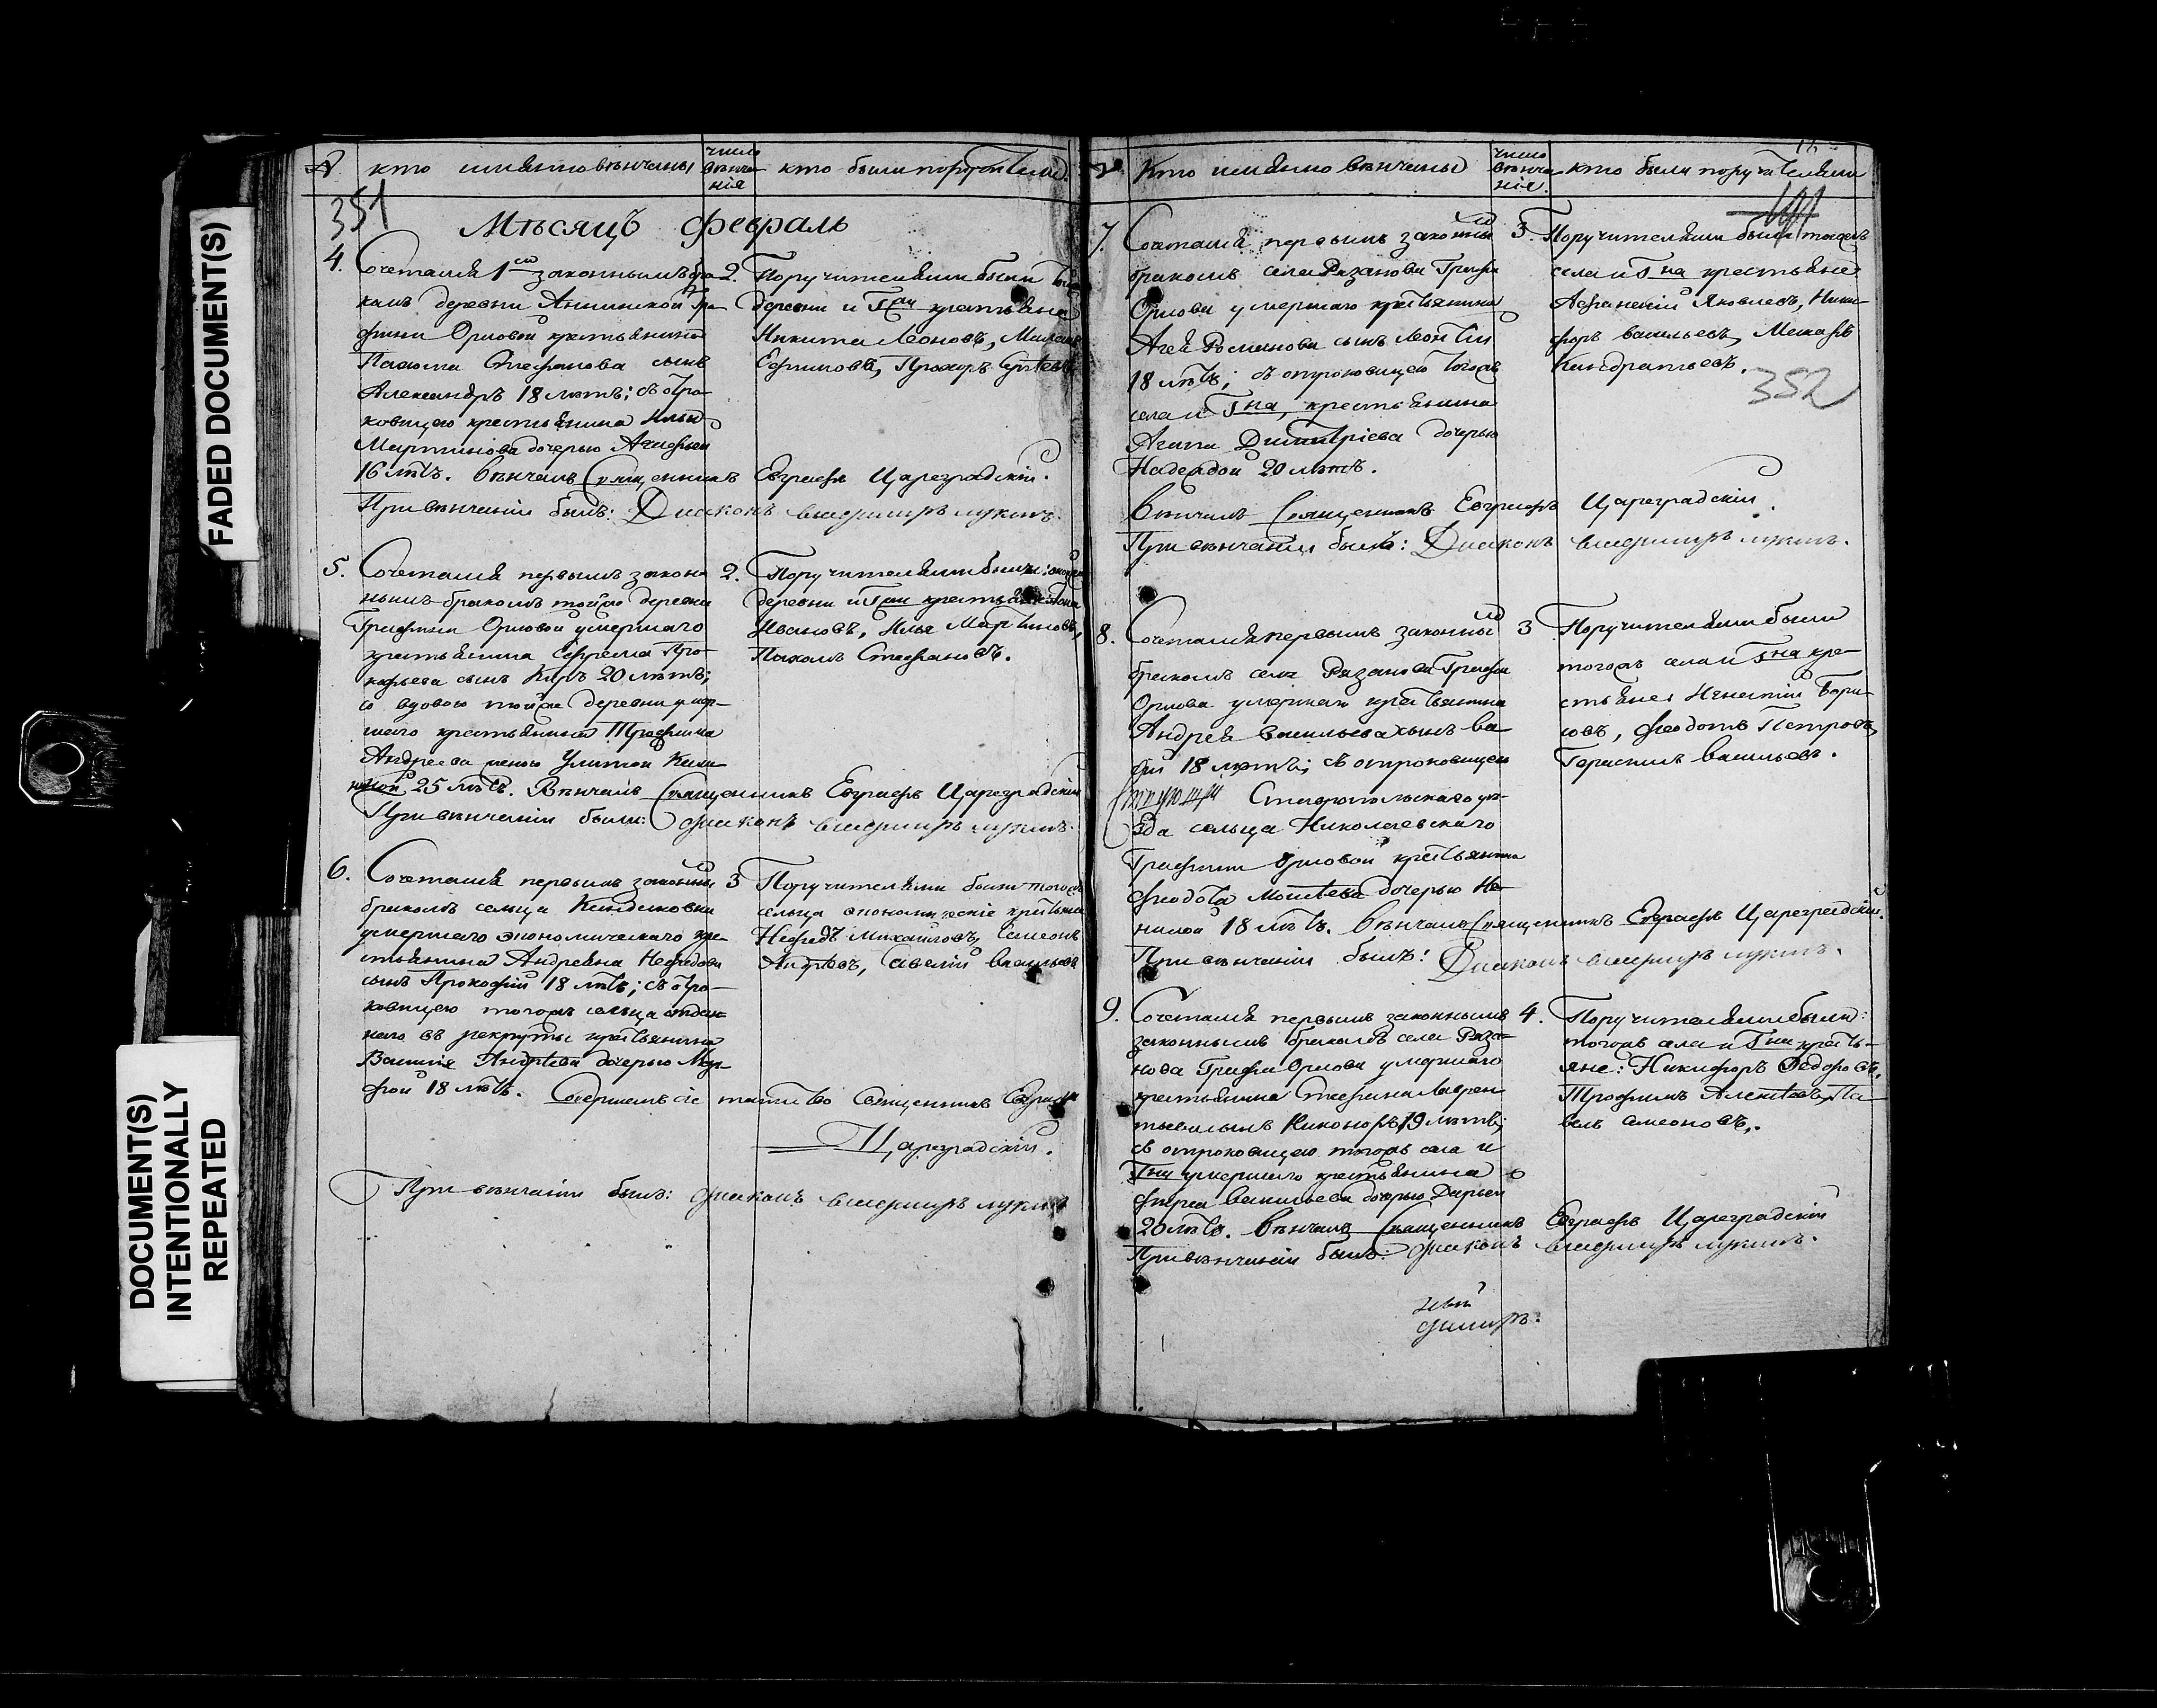 FADED DOCUMENT(S)
DOCUMENT(S)
INTENTIONALLY
REPEATED
№ кто имянно венчаны
число венчания
кто были поручители.
351
Мѣсяцъ февраль
4. Сочетался 1м законнымъ бра-
комъ деревни Аннинской Гра-
фини Орловой крестьянина
Пахома Стефанова сынъ
Александръ 18 лѣтъ; съ отро-
ковицею крестьянина Ильи
Мартинова дочерью Агафьей
16 лѣтъ. Венчалъ Священникъ Евграфъ Цареградскій.
При венчаніи былъ: Диаконъ Владимиръ Лукинъ.
2. Поручителями были
деревни и крестьяна
Никита Леоновъ,
Ефимовъ, Прохоръ Сергѣевъ
5. Сочетался первымъ закон
нымъ бракомъ тойже деревни
Графини Орловой умершаго
крестьянина Ефрема Про-
кофьева сынъ Киръ 20 лѣтъ;
со вдовою тойже деревни умер-
шаго крестьянина Трофима
Андреева женою Улитой
25 лѣтъ. Венчалъ Священникъ Евграфъ Цареградскій
При венчаніи были: диаконъ Владимиръ Лукинъ.
2. Поручителями были:
деревни и крестьяна
Ивановъ, Илья Мартиновъ,
Пахомъ Стефановъ.
6. Сочетался первымъ законны
бракомъ сельца Киндяковки
умершаго экономическаго кре-
стьянина Андреяна Нефедова
сынъ Прокофій 18 лѣтъ; съ отро-
ковицею тогожъ сельца отдан-
наго въ рекруты крестьянина
Василія Андрѣева дочерью Мар-
фой 18 лѣтъ. Совершалъ сіе таинство Священникъ Евграфъ
Цареградскій.
При венчаніи былъ: диаконъ Владимиръ Лукинъ
3 Поручителями были тогожъ
сельца экономическіе крестьяна
Нефедъ Михайловъ, Симеонъ
Андрѣевъ, Савелій Васильевъ
Кто имянно венчаны
число венчания.
кто были поручителями
352
7. Сочетался первымъ законны
бракомъ села Рязанова Графа
Орлова умершаго крестьянина
Агея Романова сынъ Леонтій
18 лѣтъ; съ отроковицею тогожъ
села и Гна, крестьянина
Агапа Димитріева дочерью
Надеждой 20 лѣтъ.
Венчалъ Священникъ Евграфъ Цареградскій.
При венчаніи былъ: Диаконъ Владимиръ Лукинъ.
3. Поручителями были тогожъ
села и Гна крестьяне
Афанасій Яковлевъ, Ники-
форъ Васильевъ,
Кондратьевъ.
8. Сочетался первымъ законны
бракомъ села Рязанова Графа
Орлова умершаго крестьянина
Андрея Васильева сынъ Ва-
18 лѣтъ; съ отроковицею
Ставропольскаго уѣ-
зда сельца Николаевскаго
Графини Орловой крестьянина
Феодота Моисѣева дочерью Не-
нилой 18 лѣтъ. Венчалъ Священникъ Евграфъ Цареградскій.
При венчаніи былъ: Диаконъ Владимиръ Лукинъ.
3 Поручителями были
тогожъ села и Гна кре-
стьянe Игнатій Бори-
совъ, Феодотъ Петровъ,
Герасимъ Васильевъ.
9. Сочетался первымъ законнымъ
законнымъ бракомъ села Ряза-
нова Графа Орлова умершаго
крестьянина Стефана Лаврен-
тьева сынъ Никоноръ 19 лѣтъ;
съ отроковицею тогожъ села и
Гна умершаго крестьянина
Васильева дочерью Дарьей
20 лѣтъ. Венчалъ Священникъ Евграфъ Цареградскій
При венчаніи былъ: диаконъ Владимиръ Лукинъ.
4. Поручителями были:
тогожъ села и Гна кресть-
яне: Никифоръ Федоровъ,
Трофимъ Алексѣевъ, Па-
велъ Симеоновъ.